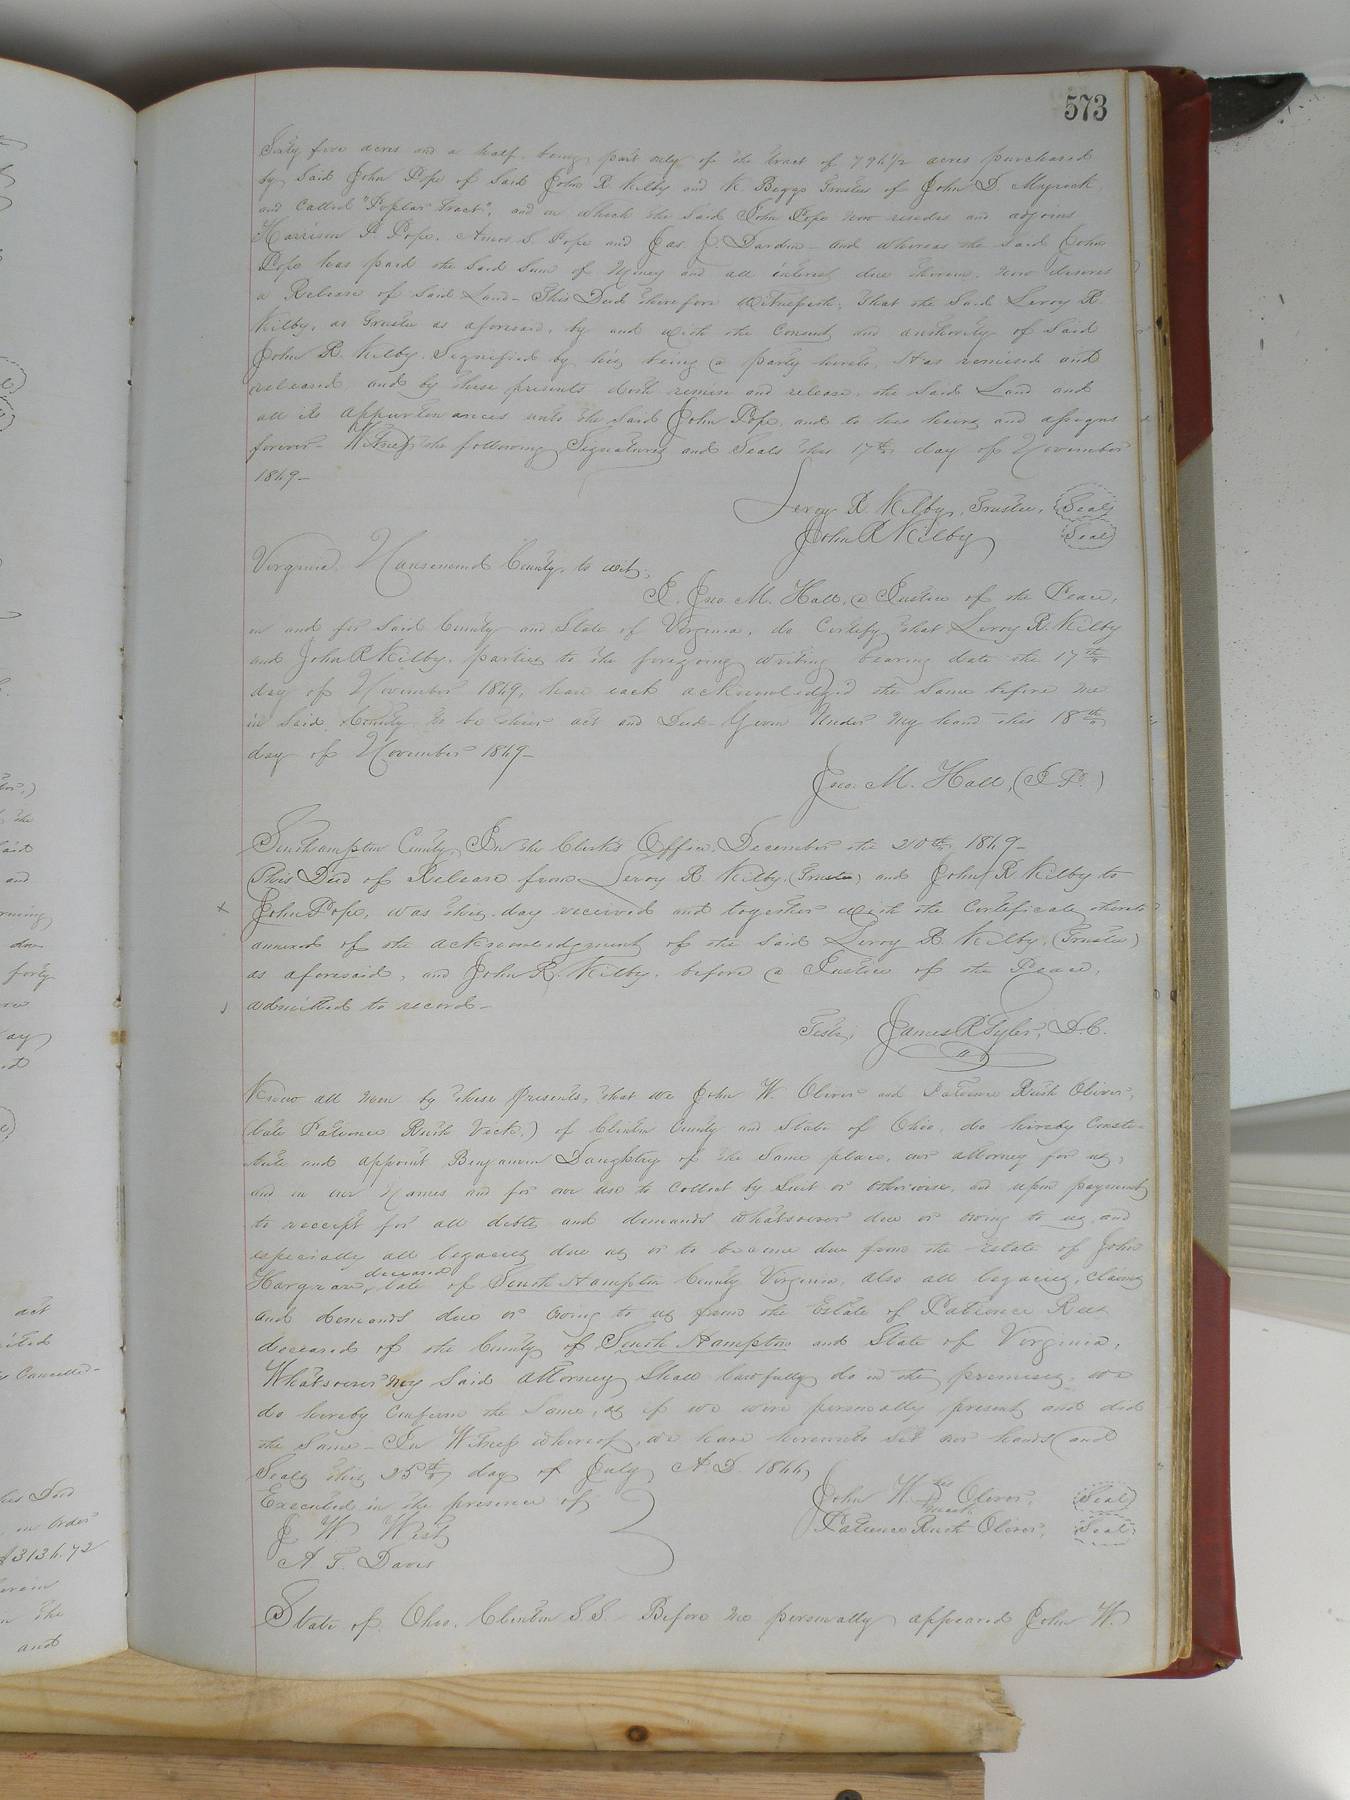 573
Sixty five acres and a half, being part only of the tract of 794 1/2 acres purchased
by said John Pope of said John R Kilby and K. Beggs Trustees of John D.
and called "Poplar Tract", and on which the said John Pope now resides and adjoins
Harrison P Pope, Amos S. Pope and Jas. J. Darden - and whereas the said John
Pope has paid the said sum of Money and all interest due thereon, now desires
a Release of said Land - This Deed therefore witnesseth, that the said Leroy R.
Kilby, as Trustee as aforesaid, by and with the consent and authority of said
John R. Kilby, signified by his being a party hereto, Has remised and
released, and by these presents doth remise and release, the said Land and
all its appurtenances unto the said John Pope, and to his heirs and assigns
forever - Witness the following Signatures and Seals this 17th day of November
1849 -
Leroy R. Kilby, Trustee, Seal
John R Kilby Seal
Virginia, Nansemond County, to wit;
I, Jno. M. Hall, a Justice of the Peace,
in and for said County and State of Virginia, do certify that Leroy R. Kilby
and John R Kilby, parties to the foregoing writing bearing date the 17th
day of November 1849, have each acknowledged the same before me
in said County to be their act and Deed - Given Under my hand this 18th
day of November 1849 -
Jno. M. Hall, (J. P.)
Southampton County, In the Clerk's Office, December the 20th, 1849 -
This Deed of Release from Leroy R Kilby (Trustee) and John R Kilby to
x John Pope, was this day received and together with the certificate thereto
annexed of the acknowledgment of the said Leroy R Kilby, (Trustee)
as aforesaid, and John R. Kilby, before a Justice of the Peace,
admitted to record -
Teste, James R Tyler, D. C.
Know all men by these presents, that we John W. Oliver and Patience Rush Oliver,
(late Patience Rush Vick,) of Clinton County and State of Ohio, do hereby consti-
tute and appoint Benjamin Daughtry of the same place, our attorney for us,
and in our Names and for our use to collect by Suit or otherwise, and upon payment
to receipt for all debts and demands whatsoever due or owing to us, and
especially all legacies due us or to become due from the estate of John
Hargrave, deceased late of South Hampton County Virginia, also all legacies, claims
and demands due or owing to us from the Estate of Patience
deceased of the County of South Hampton and State of Virginia,
Whatsoever my said attorney shall lawfully do in the premises, we
do hereby confirm the same, as if we were personally present and did
the same - In Witness whereof, we have hereunto set our hands and
Seals this 25th day of July A. D. 1844
Executed in the presence of John W. his mark Oliver, Seal
J W West Patience Rush Oliver, Seal
A. T. Davis
State of Ohio, Clinton S S - Before me personally appeared John W.